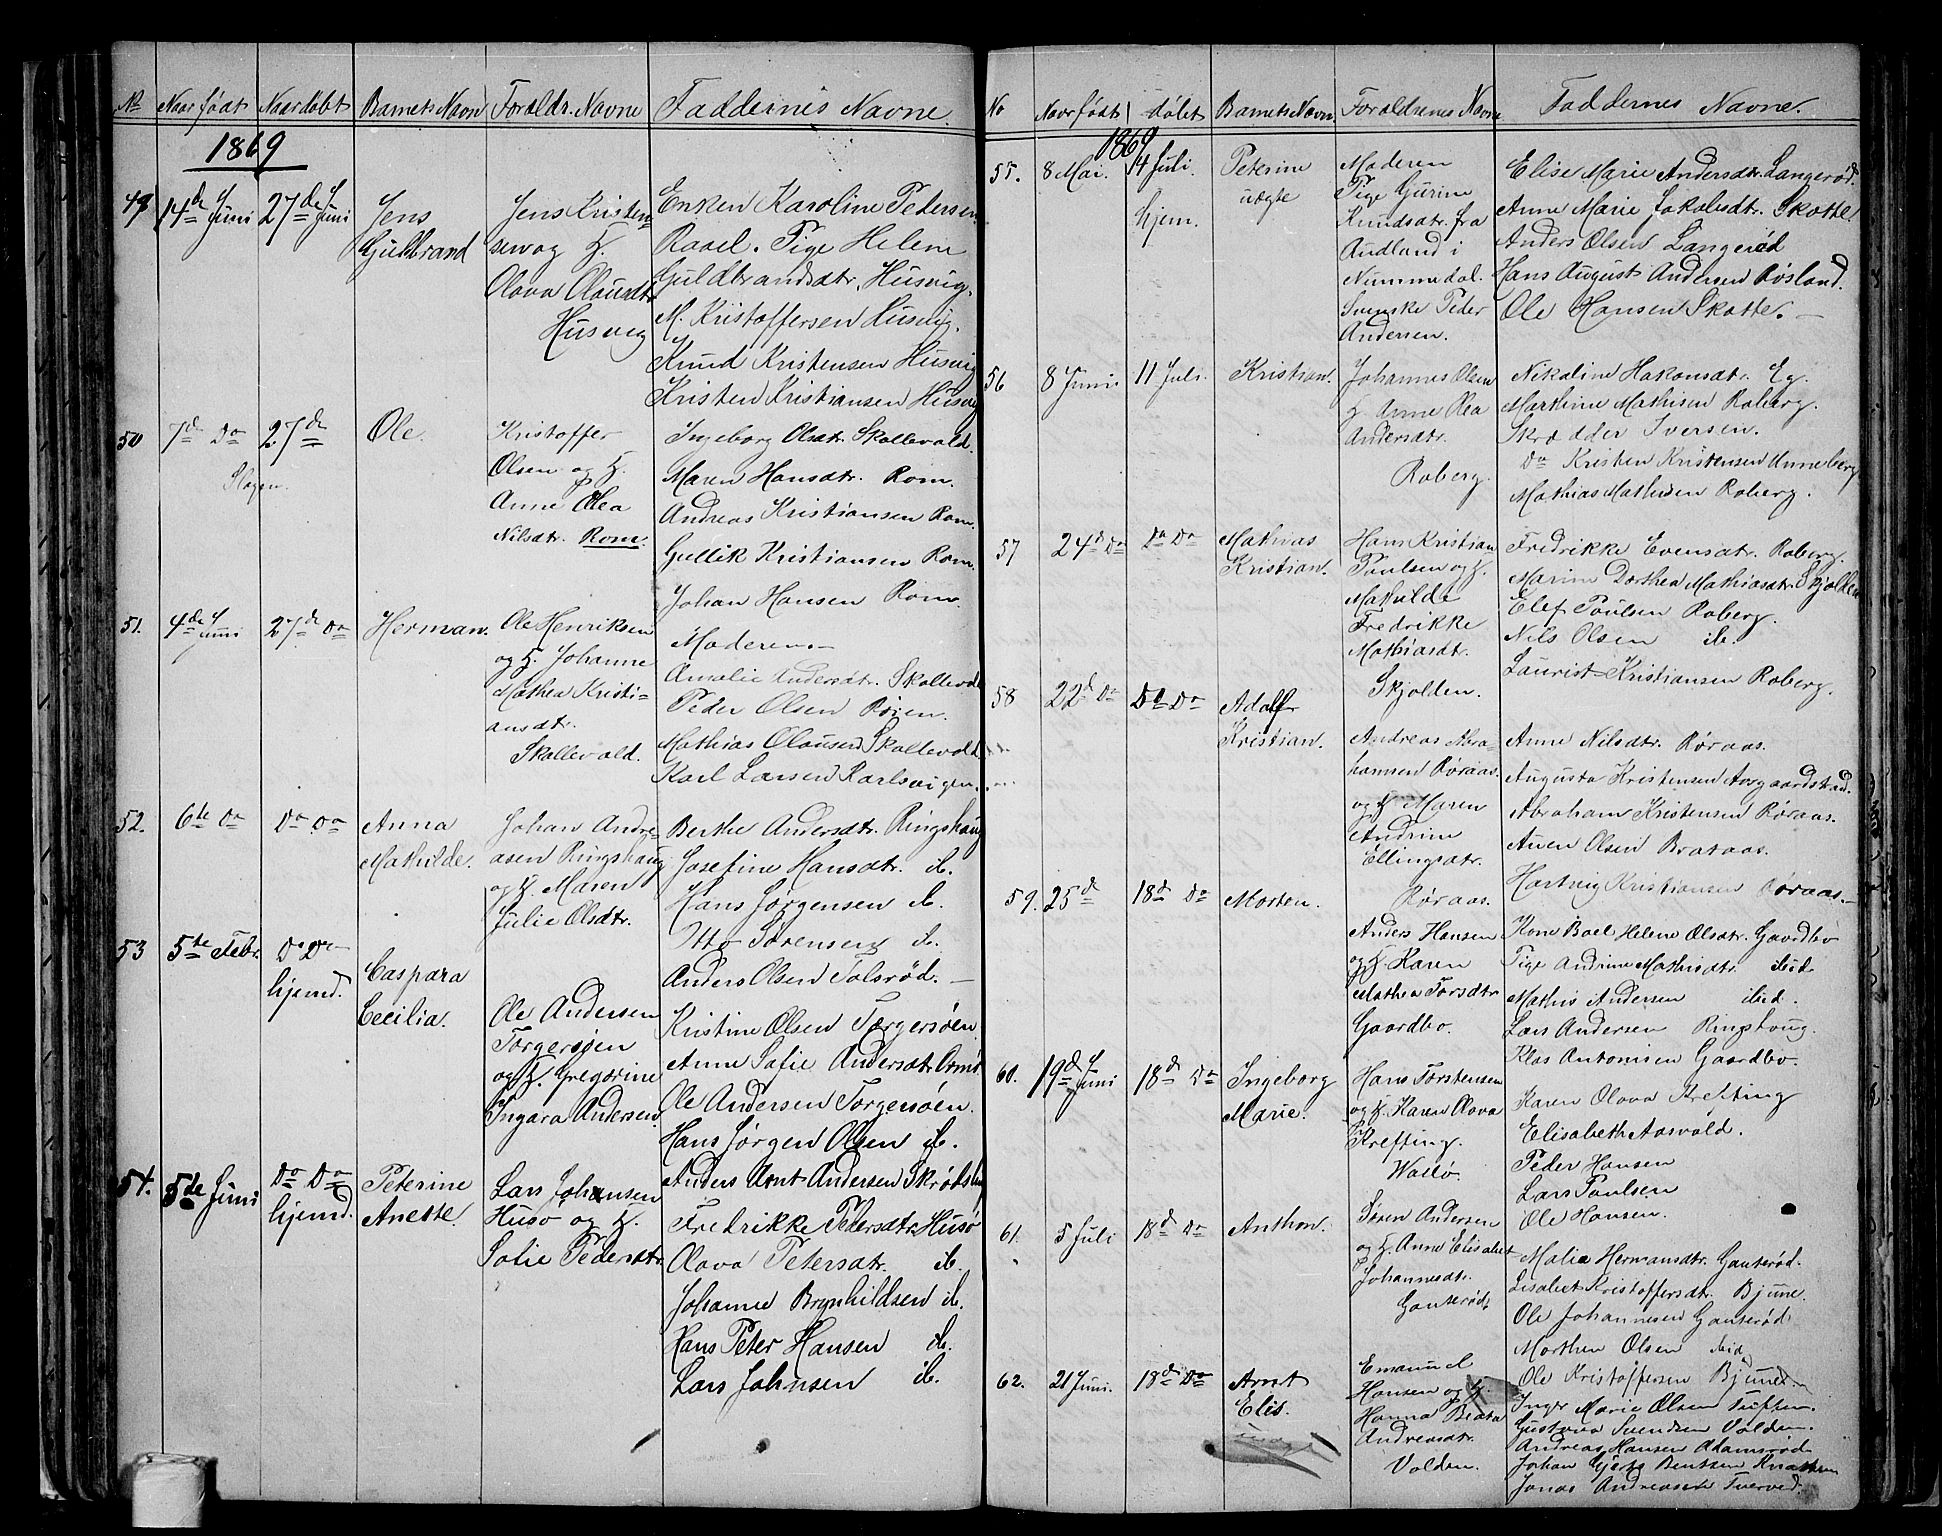 No Naar født Naar døbt Barnets Navn Foraldr. Navne Faddernes Navne.
1869
49 14de Juni 27de Juni Jens Guldbrand
Jens Kristen-
sen og H.
Olava Olausdtr
Husvig
Enken Karoline Pedersen
Raael. Pige Helene
Guldbrandsdtr. Husvig.
M. Kristoffersen Husvig.
Knud Kristensen Husvig
Kristen Kristiansen Husvig
50 7de Do 27de Ole.
Slagen.
Kristoffer
Olsen og H.
Anne Olea
Nilsdtr. Rom.
Ingeborg Olsdtr. Skallevald.
Maren Hansdtr. Rom.
Andreas Kristiansen Rom.
Gullik Kristiansen Rom.
Johan Hansen Rom.
51. 4de Juni 27de Do Herman.
Ole Henriksen
og H. Johanne
Mathea Kristi-
ansdtr.
Skallevald.
Moderen.
Amalie Andersdtr. Skallevold
Peder Olsen Røien.
Mathias Olausen Skallevold
Karl Larsen Karlsvigen.
52. 6te Do Do Do Anna
Mathilde.
Johan Andre-
asen Ringshaug
og H. Maren
Julie Olsdtr.
Berthe Andersdtr. Ringshaug
Josefine Hansdtr. ib.
Hans Jørgensen ib.
Otto Sørensen ib.
Anders Olsen Tolsrød.
53 5te Febr. Do Do
hjemd.
Caspara
Cecilia.
Ole Andersen
Torgersøen
og H. Gregorine
Ingara Andersen.
Kristine Olsen Torgersøen.
Anne Sofie Andersdtr
Ole Andersen Torgersøen.
Hans Jørgen Olsen ib.
Anders Arnt Andersen
54. 5te Juni Do Do
hjemd.
Peterine
Anette.
Lars Johansen
Husø og H.
Sofie Pedersdtr.
Fredrikke Petersdtr. Husø
Olava Petersdtr. ib.
Johanne Brynhildsen ib.
Hans Peter Hansen ib.
Lars Johnsen ib.
No Naar født døbt Barnets Navn Foraldrenes Navne Faddernes Navne.
1869
55. 8 Mai. 4 Juli.
hjem.
Peterine
uægte
Moderen
Pige Gurine
Knudsdtr. fra
Audland i
Nummedal.
Svenske Peder
Andersen.
Elise Marie Andersdtr. Langerød.
Anne Marie Jakobsdtr. Skatte.
Anders Olsen Langerød
Hans August Andersen Røsland.
Ole Hansen Skatte.
56 8 Juni 11 Juli. Kristian.
Johannes Olsen
H Anne Olea
Andersdtr.
Roberg.
Nikoline Hakonsdtr. Eg.
Marthine Mathisen Roberg.
Skrædder Iversen.
Do Kristen Kristensen Unneberg
Mathias Mathisen Roberg.
57 24d Do Do Do Mathias
Kristian.
Hans Kristian
Poulsen og H.
Mathilde
Fredrikke
Mathiasdt.
Skjolden.
Fredrikke Evensdtr. Roberg.
Marine Dorthea Mathiasdtr. Skjolden
Elef Poulsen Roberg.
Nils Olsen ib.
Laurist Kristiansen Roberg.
58 22d Do Do Do Adolf
Kristian.
Andreas Abra-
hamsen Røraas.
og H Maren
Andrine
Ellingsdtr.
Røraas.
Anne Nilsdtr. Røraas.
Augusta Kristensen Aasgaardstrand.
Abraham Kristensen Røraas.
Auen Olsen Brataas.
Hartvig Kristiansen Røraas.
59. 25d 18d Do Morten.
Anders Hansen
og H. Karen
Mathea Torsdtr.
Gaardbo.
Kone Boel Helene Olsdtr. Gaardbo
Pige Andrine Mathisdtr. ibid
Mathis Andersen ibid.
Lars Andersen Ringshaug.
Klas Antonisen Gaardbo.
60. 19d Juni 18d Do Ingeborg
Marie.
Hans Torstensen
og H. Karen Olava
Krefting.
Valløe
Karen Olava Krefting
Elisabeth Aasvold.
Peder Hansen
Lars Poulsen
Ole Hansen.
61. 5 Juli 18d Do Anthon.
Søren Andersen
og H. Anne Elisabet
Johannesdtr.
Gauterød.
Malia Hermansdtr. Gauterød.
Lisabet Kristoffersdtr. Bjune.
Ole Johannesen Gauterød.
Morthen Olsen ibid
Ole Kristoffersen Bjune
62. 21 Juni. 18d Do Arnt
Elis.
Emanuel
Hansen og H.
Hanna Beata
Andreasdtr.
Volden.
Inger Marie Olsen Tuften.
Gustava Svendsen Volden.
Andreas Hansen Adamsrød
Johan Gjerts Bentsen
Jonas Andreasen Tverved.